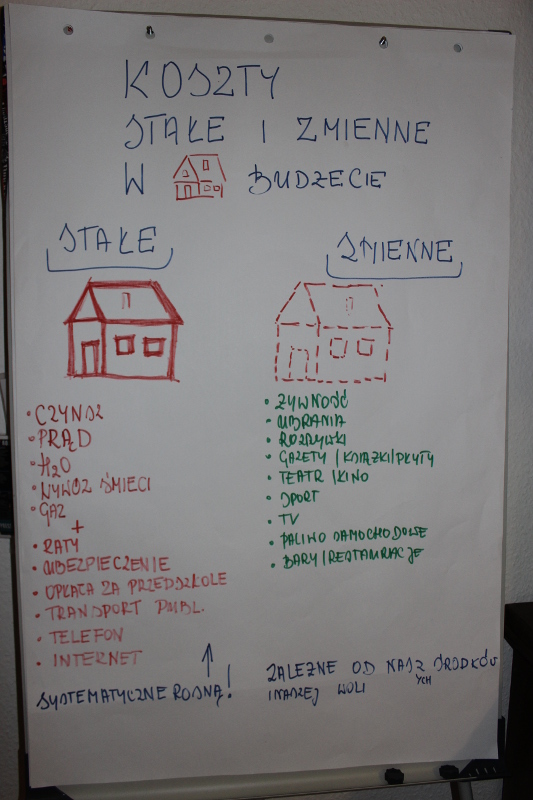 KOSZTY
STAŁE I ZMIENNE
W BUDŻECIE
STAŁE
• CZYNSZ
• PRĄD
• H2O
• WYWÓZ ŚMIECI
• GAZ
+
• RATY
• UBEZPIECZENIE
• OPŁATA ZA PRZEDSZKOLE
• TRANSPORT PUBL.
• TELEFON
• INTERNET
SYSTEMATYCZNE ROSNĄ!
ZMIENNE
• ŻYWNOŚĆ
• UBRANIA
• ROZRYWKI
• GAZETY / KSIĄŻKI / PŁYTY
• TEATR / KINO
• SPORT
• TV
• PALIWO SAMOCHODOWE
• BARY / RESTAURACJE
ZALEŻNE OD NASZYCH ŚRODKÓW
I NASZEJ WOLI